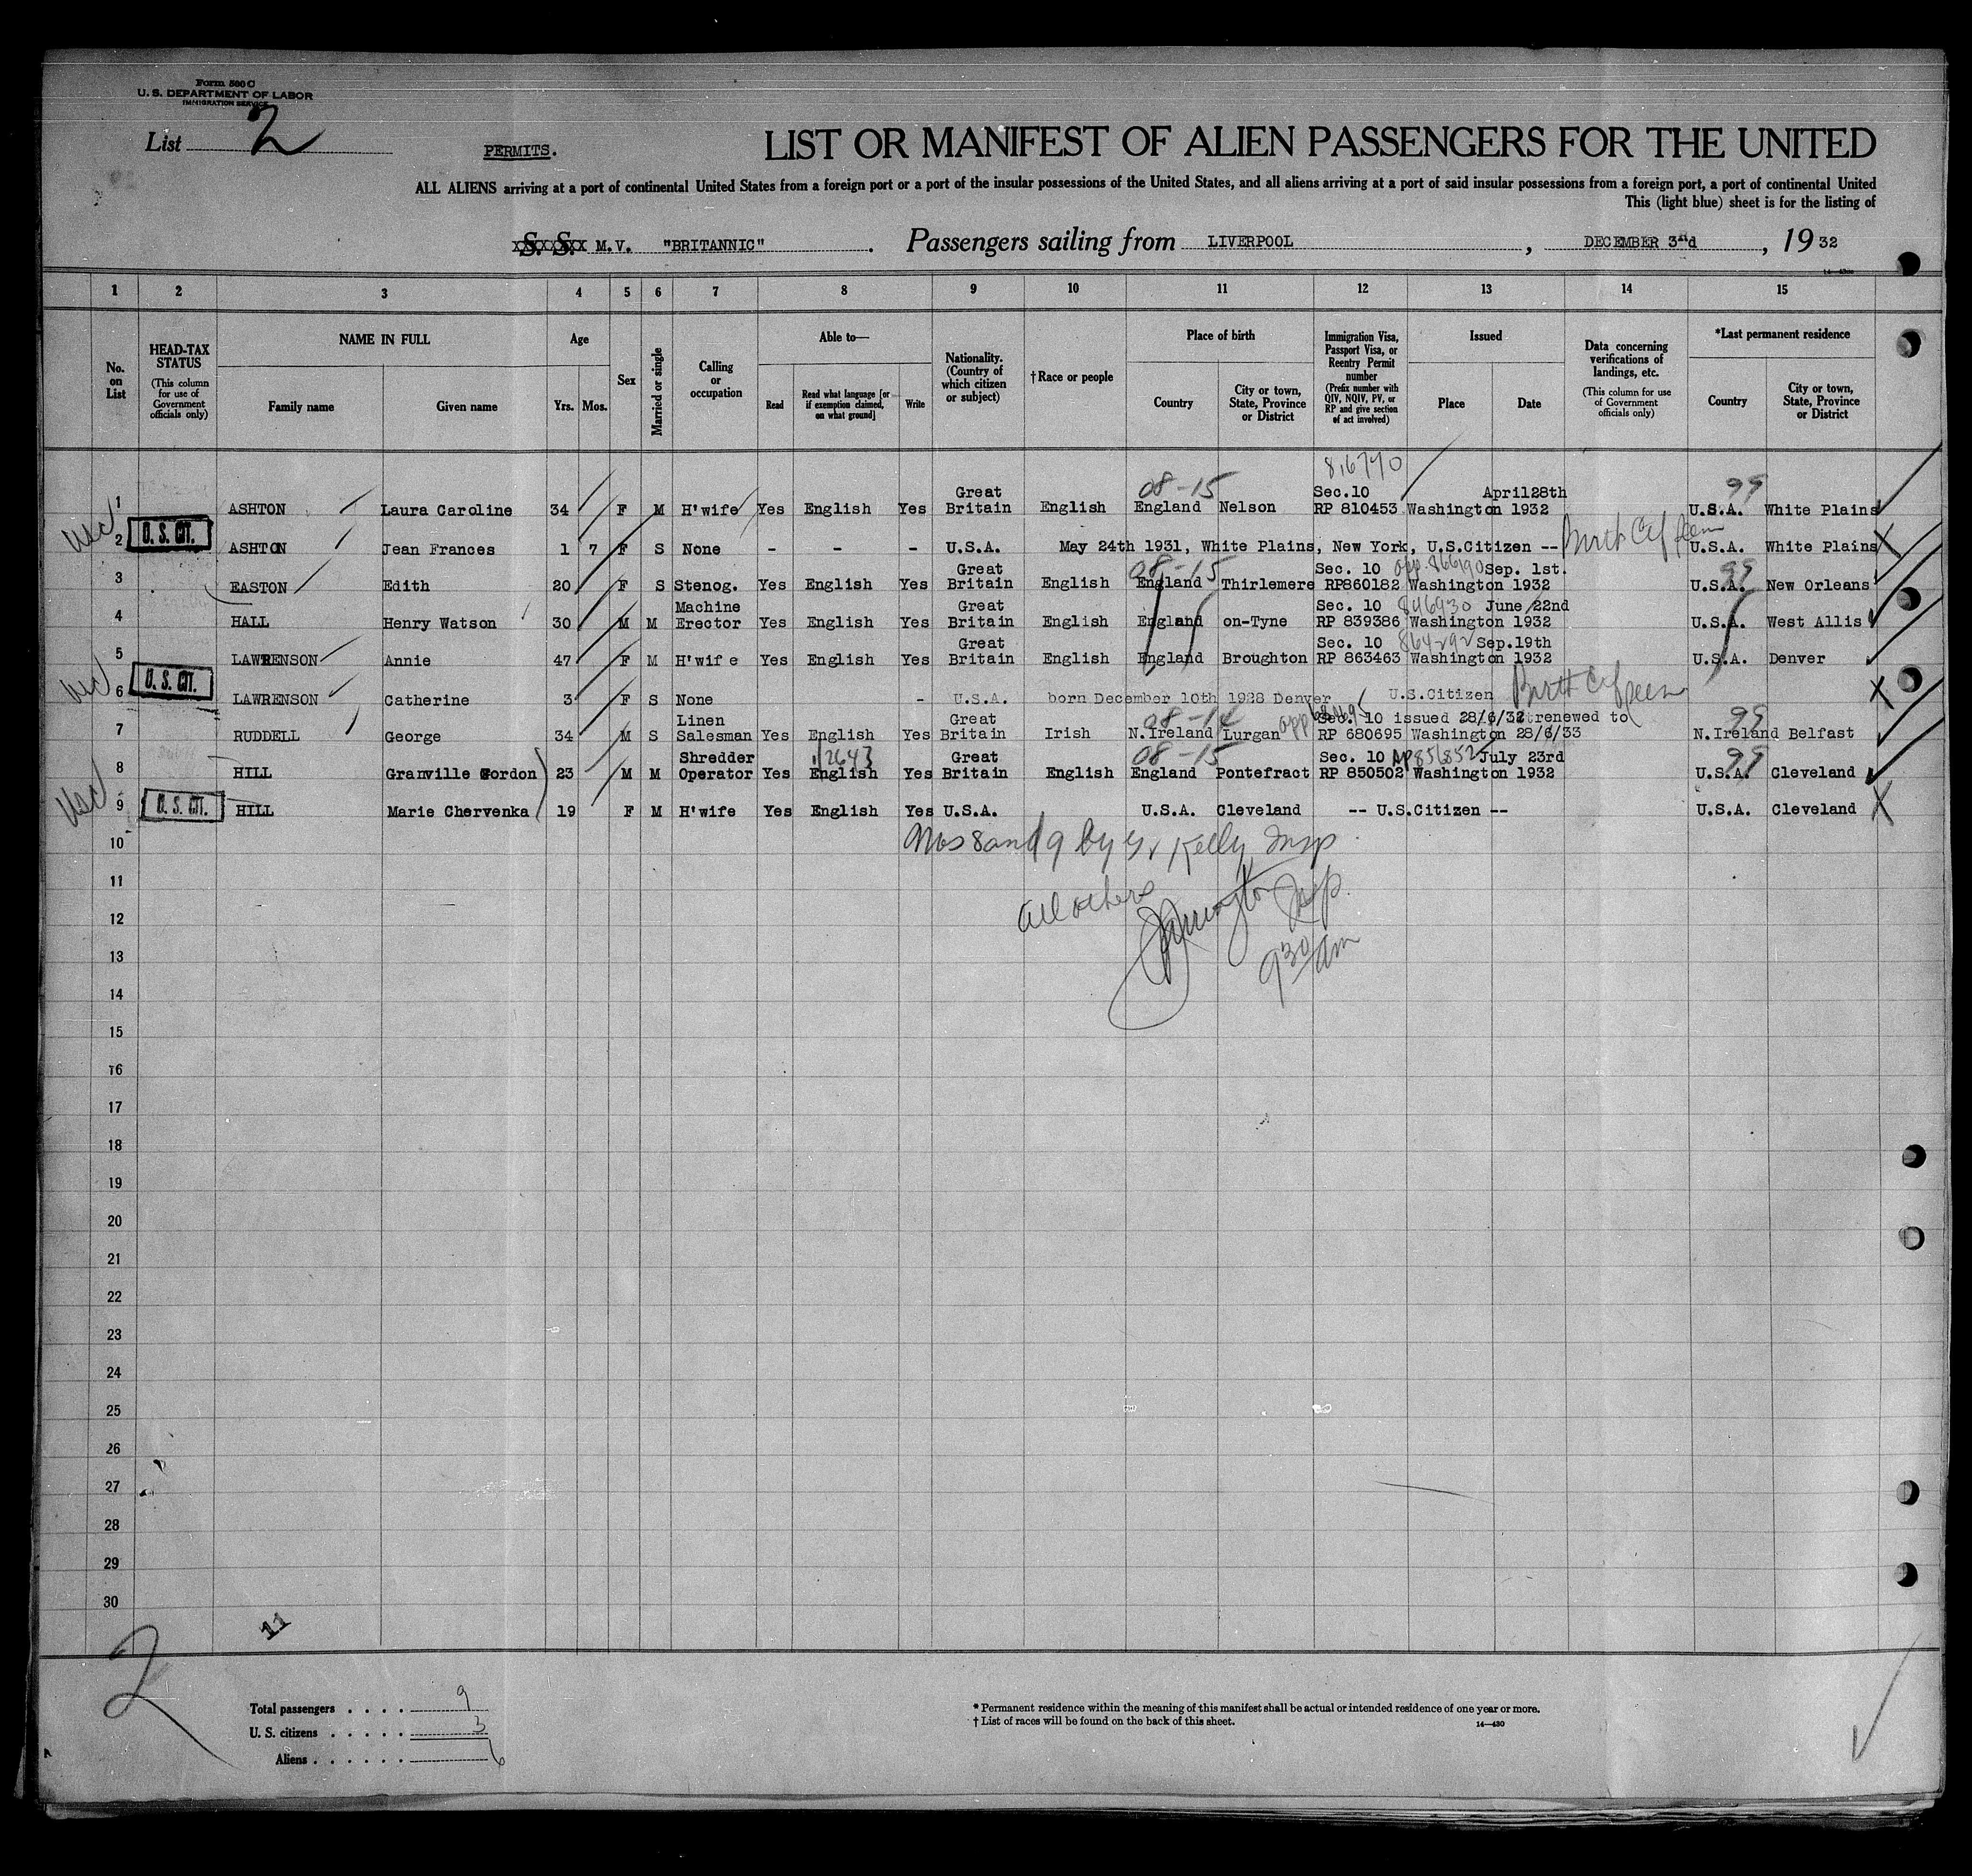 Form 500 C
U. S. DEPARTMENT OF LABOR
IMMIGRATION SERVICE
List 2
PERMITS.
LIST OR MANIFEST OF ALIEN PASSENGERS FOR THE UNITED
ALL ALIENS arriving at a port of continental United States from a foreign port or a port of the insular possessions of the United States, and all aliens arriving at a port of said insular possessions from a foreign port, a port of continental United
This (light blue) sheet is for the listing of
S. S. M.V. "BRITANNIC" . Passengers sailing from LIVERPOOL , DECEMBER 3rd , 19 32
1 2 3 4 5 6 7 8 9 10 11 12 13 14 15
No. on List
HEAD-TAX STATUS (This column for use of Government officials only)
NAME IN FULL Family name Given name
Age Yrs. Mos.
Sex
Married or single
Calling or occupation
Able to— Read Read what language [or if exemption claimed, on what ground] Write
Nationality. (Country of which citizen or subject)
†Race or people
Place of birth Country City or town, State, Province or District
Immigration Visa, Passport Visa, or Reentry Permit number (Prefix number with QIV, NQIV, PV, or RP and give section of act involved)
Issued Place Date
Data concerning verifications of landings, etc. (This column for use of Government officials only)
*Last permanent residence Country City or town, State, Province or District
816770
08-15 99
Great Sec.10 April28th
1 ASHTON Laura Caroline 34 F M H'wife Yes English Yes Britain English England Nelson RP 810453 Washington 1932 U.S.A. White Plains
usc U. S. CIT.
2 ASHTON Jean Frances 1 7 F S None - - - U.S.A. May 24th 1931, White Plains, New York, U.S.Citizen -- Birth Cef seen U.S.A. White Plains
08-15 99
Great Sec. 10 app 866190 Sep. 1st.
3 EASTON Edith 20 F S Stenog. Yes English Yes Britain English England Thirlemere RP860182 Washington 1932 U.S.A. New Orleans
Machine Great Sec. 10 846930 June 22nd
4 HALL Henry Watson 30 M M Erector Yes English Yes Britain English England on-Tyne RP 839386 Washington 1932 U.S.A. West Allis
Great Sec. 10 864292 Sep.19th
5 LAWRENSON Annie 47 F M H'wife Yes English Yes Britain English England Broughton RP 863463 Washington 1932 U.S.A. Denver
usc U. S. CIT.
6 LAWRENSON Catherine 3 F S None - U.S.A. born December 10th 1928 Denver U.S.Citizen Birth Cef seen
08-14 99
Linen Great Sec. 10 issued 28/6/32 renewed to
7 RUDDELL George 34 M S Salesman Yes English Yes Britain Irish N.Ireland Lurgan RP 680695 Washington 28/6/33 N.Ireland Belfast
12643 08-15 99
Shredder Great Sec. 10 AP856852 July 23rd
8 HILL Granville Gordon 23 M M Operator Yes English Yes Britain English England Pontefract RP 850502 Washington 1932 U.S.A. Cleveland
usc U. S. CIT.
9 HILL Marie Chervenka 19 F M H'wife Yes English Yes U.S.A. U.S.A. Cleveland -- U.S.Citizen -- U.S.A. Cleveland
10
Nos 8 and 9 by Kelly Insp
11
12
All others
Insp.
13
9 30/am
14
15
16
17
18
19
20
21
22
23
24
25
26
27
28
29
30
11
2
Total passengers . . . . 9
U. S. citizens . . . . . 3
Aliens . . . . . . 6
* Permanent residence within the meaning of this manifest shall be actual or intended residence of one year or more.
† List of races will be found on the back of this sheet.
14—430